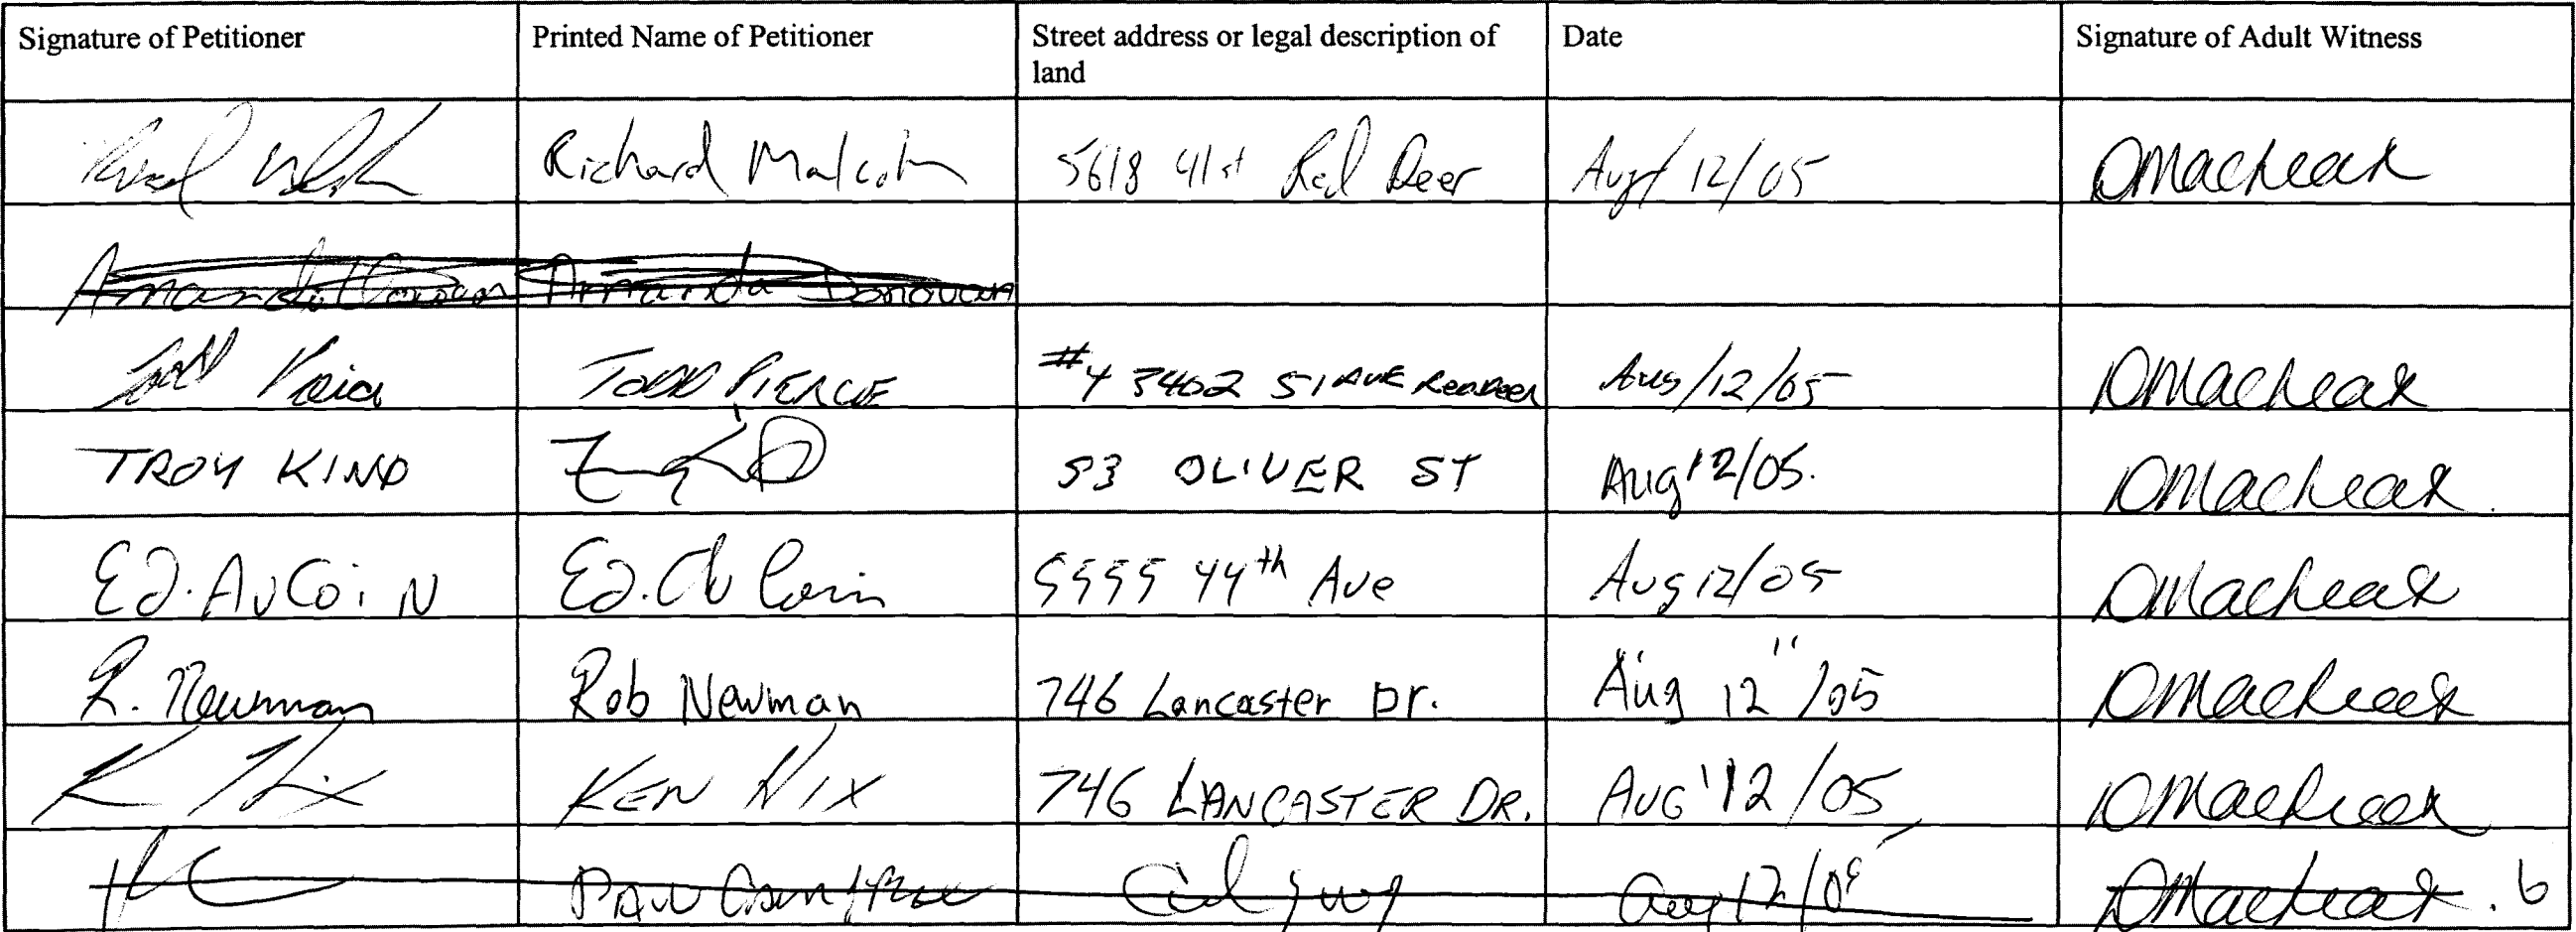 Signature of Petitioner Printed Name of Petitioner Street address or legal description of Date Signature of Adult Witness
land
Richard Malcolm 5618 41st Red Deer Aug/12/05
Amanda Donovan Amanda Donovan
TODD PIERCE #4 3402 51 AVE RED DEER Aug/12/05
TROY KIND 53 OLIVER ST Aug 12/05.
Ed. AuCoiN Ed. Au Coin 5555 44th Ave Aug 12/05
R. Newman Rob Newman 746 Lancaster Dr. Aug 12 /05
K Nix KEN NIX 746 LANCASTER DR. AUG 12/05
Paul Calgary Aug 12/05 6